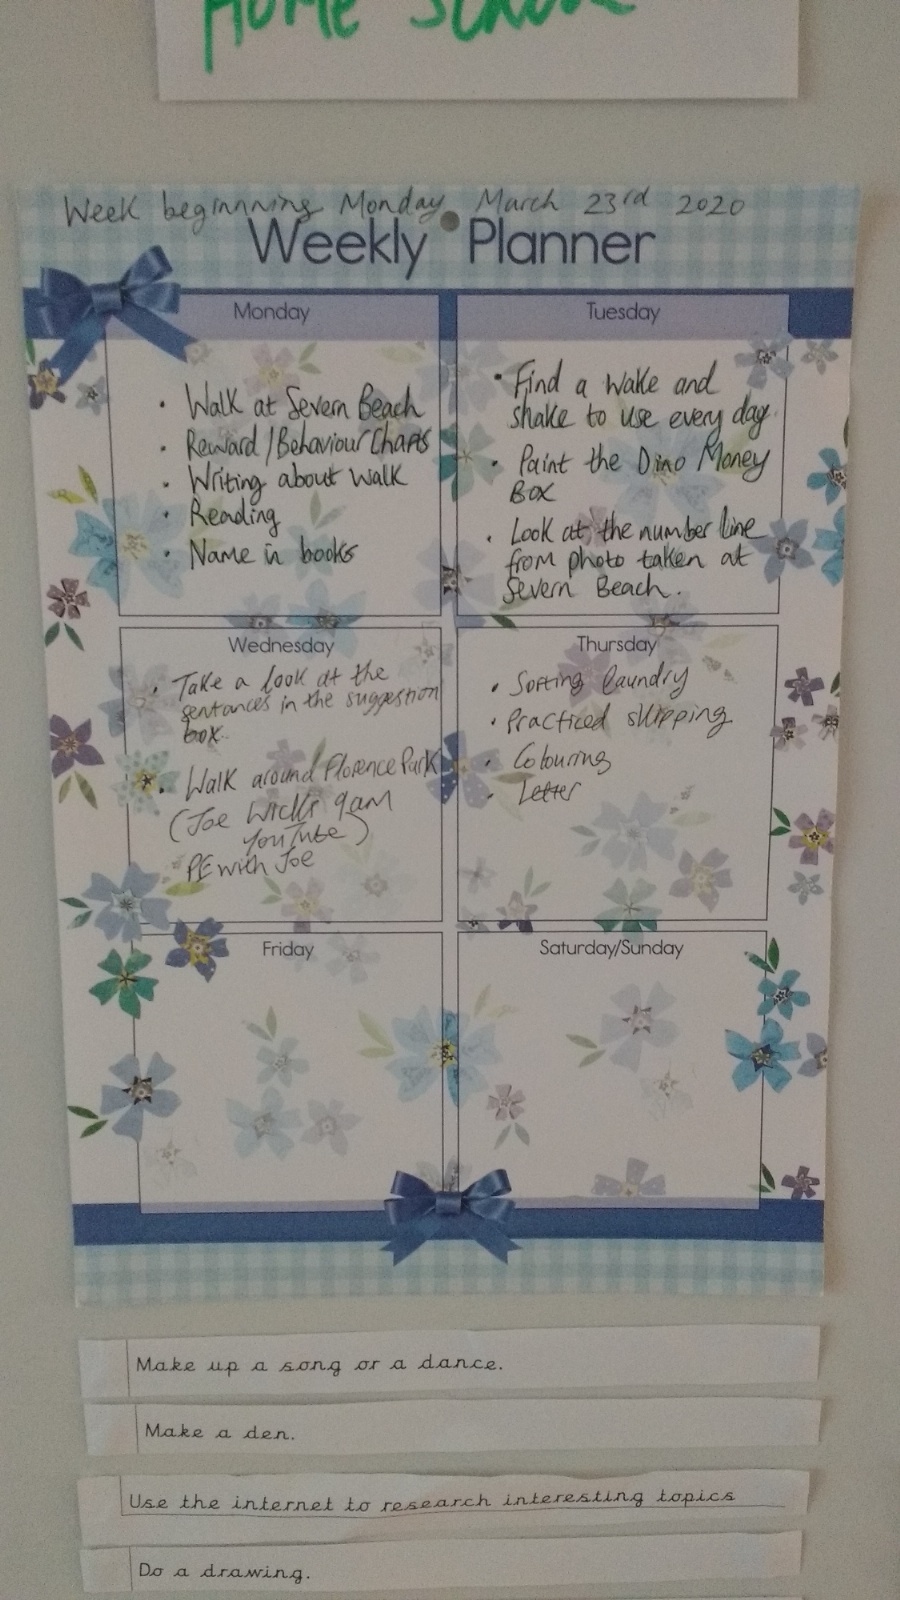 Home School
Week beginnning Monday March 23rd 2020
Weekly Planner
Monday
• Walk at Severn Beach
• Reward/Behaviour Charts
• Writing about walk
• Reading
• Name in books
Tuesday
• Find a wake and
shake to use every day
• Paint the Dino Money
Box
• Look at the number line
from photo taken at
Severn Beach.
Wednesday
• Take a look at the
sentances in the suggestion
box.
• Walk around Florence Park
(Joe Wicks 9am
YouTube)
PE with Joe
Thursday
• Sorting laundry
• Practiced skipping
• Colouring
• Letter
Friday
Saturday/Sunday
Make up a song or a dance.
Make a den.
Use the internet to research interesting topics
Do a drawing.